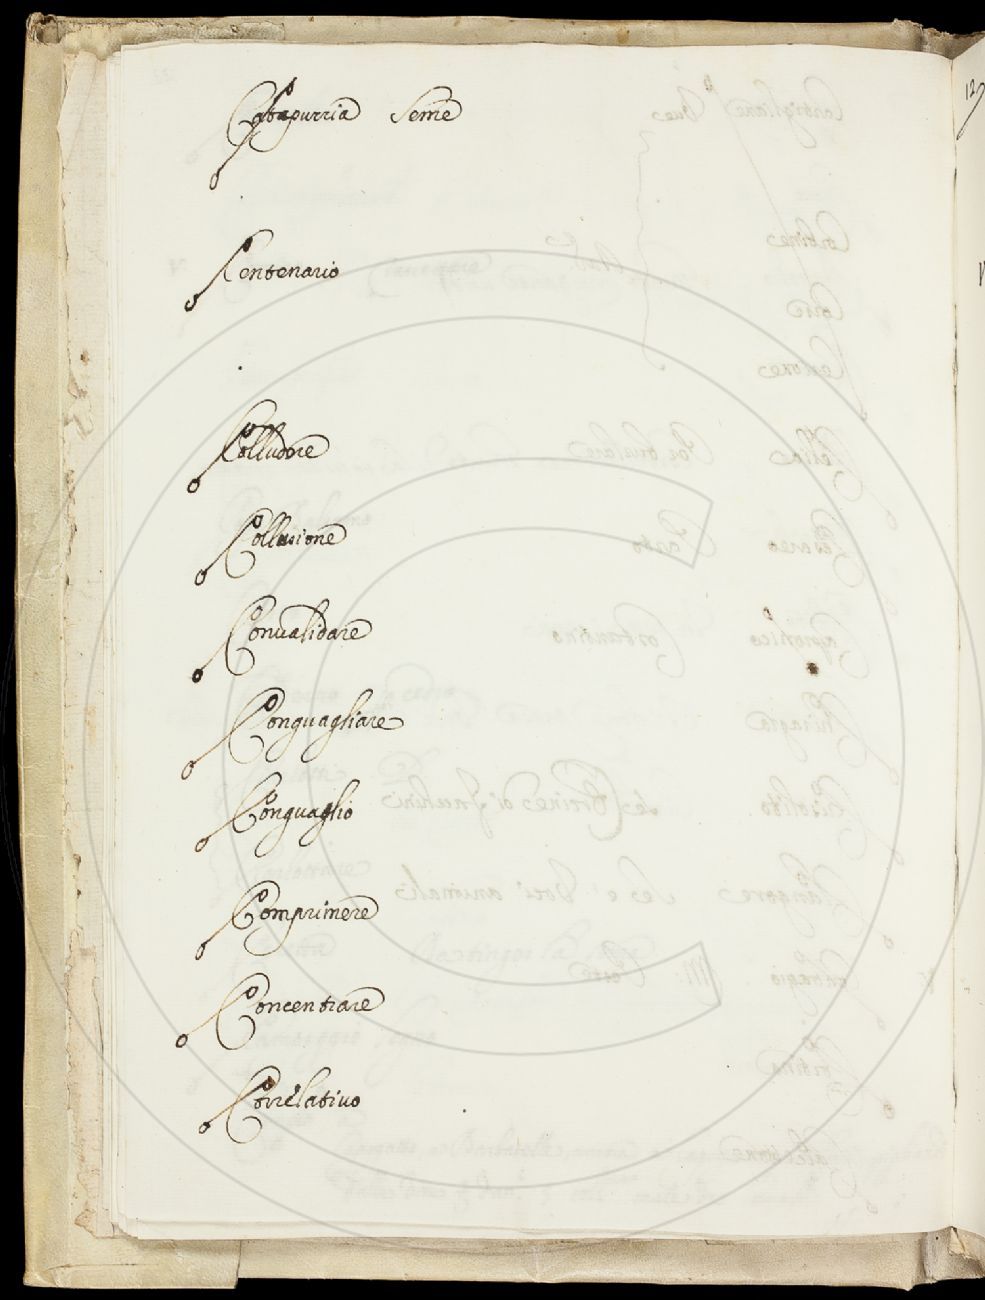 Catapurria Seme
Centenario
Colludere
Collusione
Conualidare
Conguagliare
Conguaglio
Comprimere
Concentrare
Correlatiuo
12